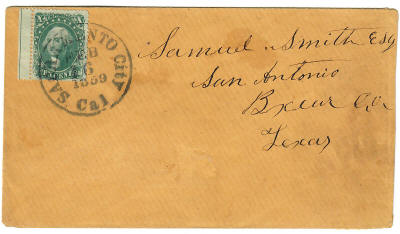 Samuel Smith Esq
San Antonio
Bxeur Co.
Texas
SA NTO City
6
1859
Cal
TEN CENTS